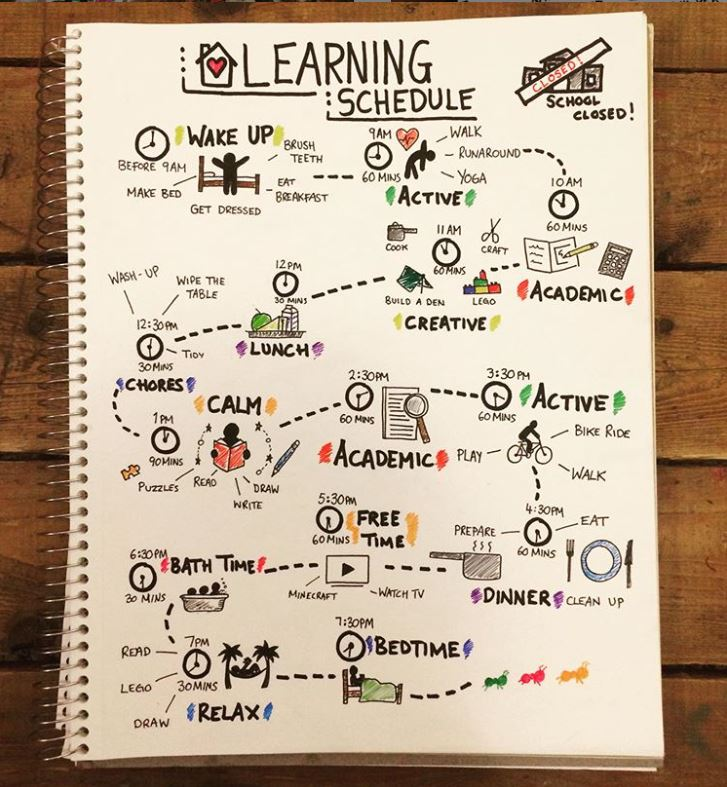 LEARNING
SCHEDULE
CLOSED!
SCHOOL
CLOSED!
WAKE UP
BEFORE 9AM
BRUSH
TEETH
MAKE BED
EAT
BREAKFAST
GET DRESSED
9AM
60 MINS
WALK
RUNAROUND
YOGA
ACTIVE
10AM
60 MINS
ACADEMIC
11AM
60 MINS
COOK
CRAFT
BUILD A DEN
LEGO
CREATIVE
12PM
30 MINS
LUNCH
WASH-UP
WIPE THE
TABLE
12:30PM
30 MINS
TIDY
CHORES
1PM
90 MINS
CALM
PUZZLES
READ
WRITE
DRAW
2:30PM
60 MINS
ACADEMIC
3:30PM
60 MINS
ACTIVE
PLAY
BIKE RIDE
WALK
4:30PM
60 MINS
PREPARE
EAT
DINNER
CLEAN UP
5:30PM
60 MINS
FREE
TIME
MINECRAFT
WATCH TV
6:30PM
30 MINS
BATH TIME
7PM
30 MINS
READ
LEGO
DRAW
RELAX
7:30PM
BEDTIME